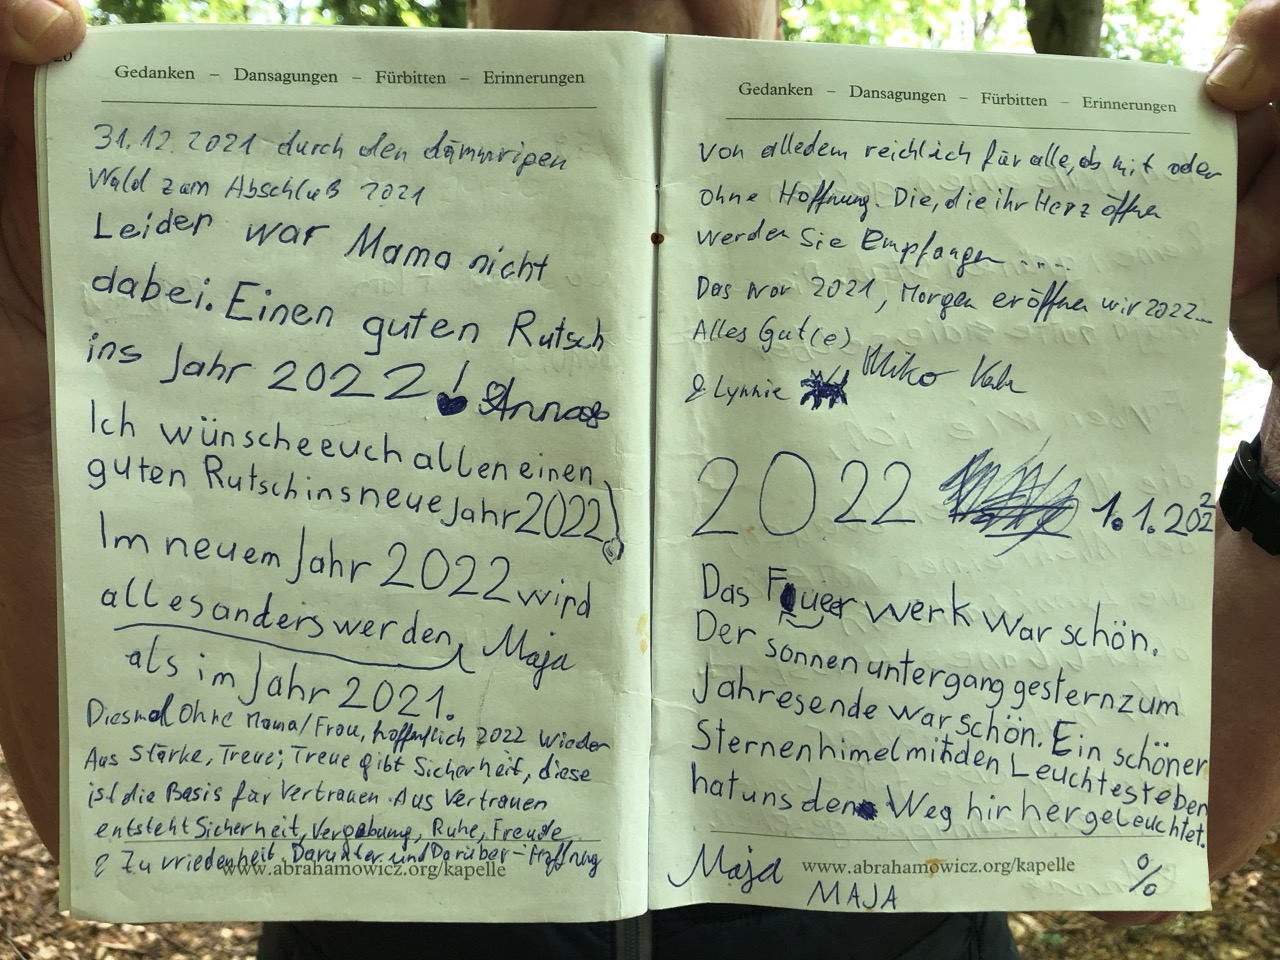 20
Gedanken – Dansagungen – Fürbitten – Erinnerungen
31.12.2021 durch den dämmrigen
Wald zum Abschluß 2021
Leider war Mama nicht
dabei. Einen guten Rutsch
ins Jahr 2022! Anna
Ich wünsche euch allen einen
guten Rutsch ins neue Jahr 2022!
Im neuem Jahr 2022 wird
alles anders werden, Maja
als im Jahr 2021.
Diesmal Ohne Mama/Frau, hoffentlich 2022 wieder
Aus Stärke, Treue; Treue gibt Sicherheit, diese
ist die Basis für Vertrauen. Aus Vertrauen
entsteht Sicherheit, Vergebung, Ruhe, Freude
& Zu vriedenheit. Darunter und Darüber - Hoffnung
www.abrahamowicz.org/kapelle
Gedanken – Dansagungen – Fürbitten – Erinnerungen
von alledem reichlich für alle, ob mit oder
ohne Hoffnung. Die, die ihr Herz öffnen
werden Sie Empfangen ....
Das war 2021, Morgen eröffnen wir 2022...
Alles Gut(e)
Miko
& Lynnie
2022 1.1.2022
Das Feuer werk war schön.
Der sonnenuntergang gestern zum
Jahresende war schön. Ein schöner
Sternenhimel mit den Leuchtesteben
hat uns den Weg hir her geleuchtet.
Maja www.abrahamowicz.org/kapelle %
MAJA